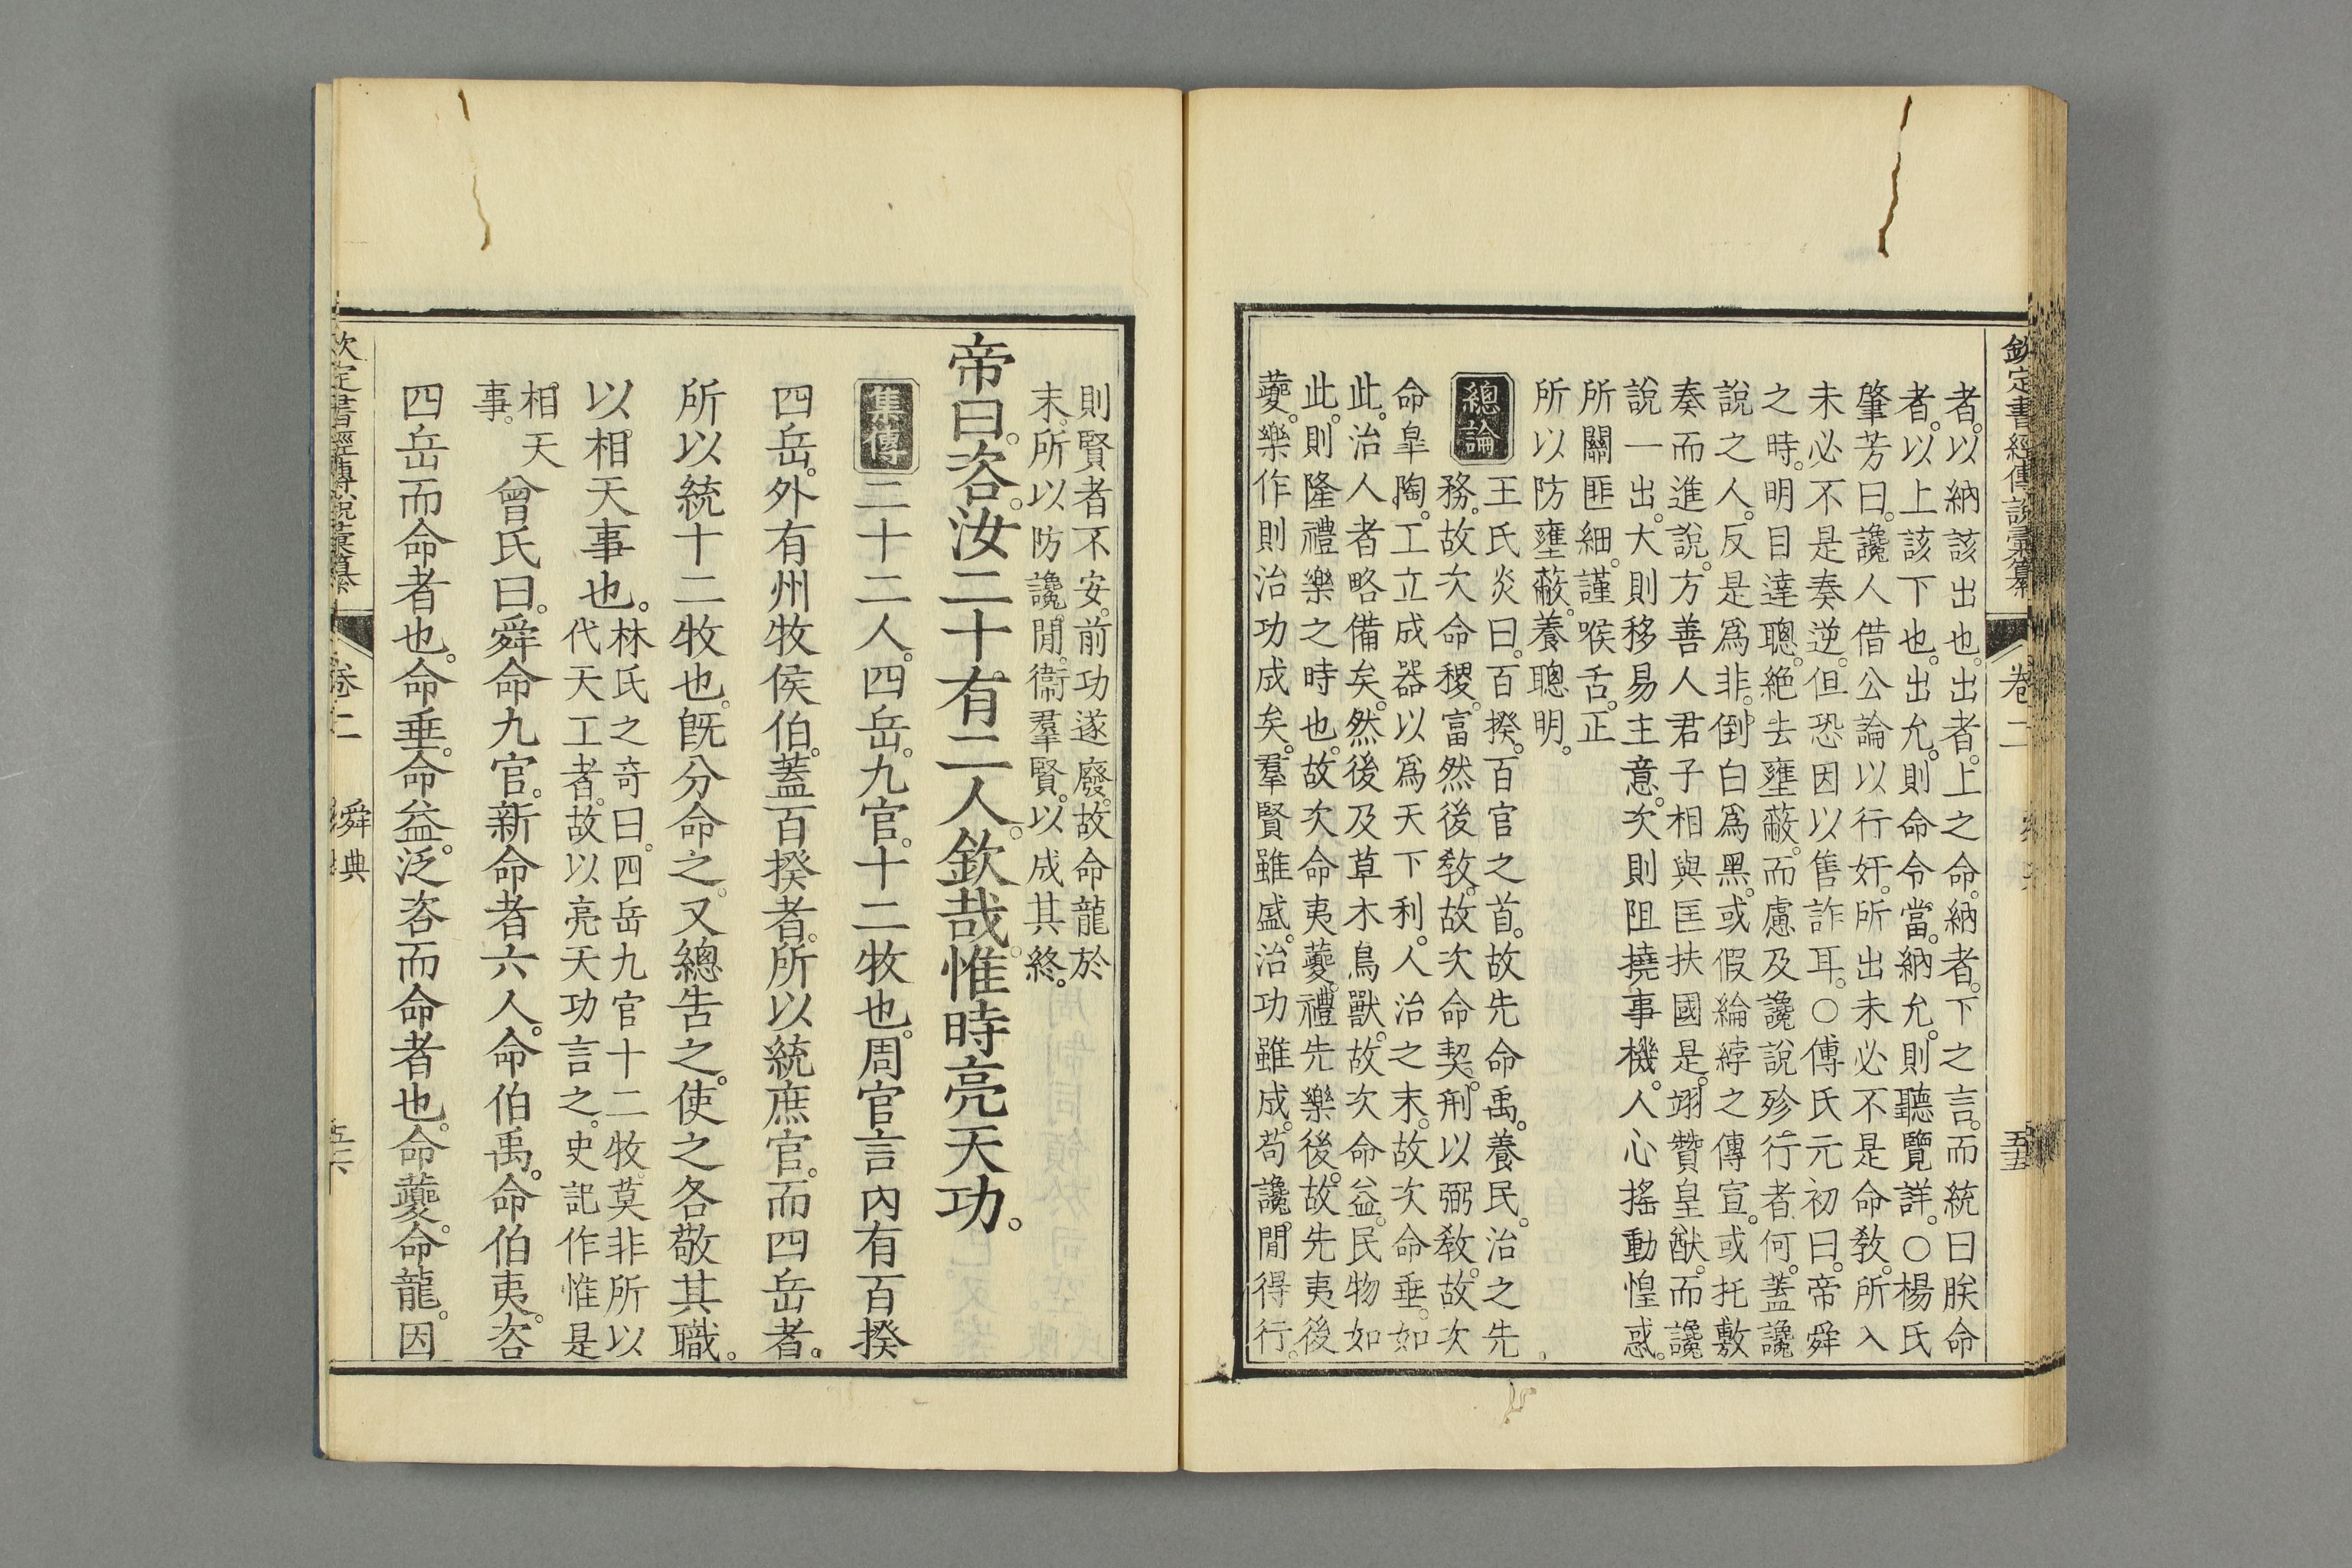 欽定書經傳說彙纂
卷二
五五
者。以納該出也。出者。上之命。納者。下之言。而統曰朕命
者。以上該下也。出允。則命令當。納允。則聽覽詳。○楊氏
肇芳曰。讒人借公論以行奸。所出未必不是命教。所入
未必不是奏逆。但恐因以售詐耳。○傅氏元初曰。帝舜
之時。明目達聰。絶去壅蔽。而慮及讒說殄行者何。蓋讒
說之人。反是爲非。倒白爲黑。或假綸綍之傳宣。或托敷
奏而進說。方善人君子相與匡扶國是。翊贊皇猷。而讒
說一出。大則移易主意。次則阻撓事機。人心搖動惶惑。
所關匪細。謹喉舌。正
所以防壅蔽。養聰明。
總論
王氏炎曰。百揆。百官之首。故先命禹。養民。治之先
務。故次命稷。富然後敎。故次命契。刑以弼敎。故次
命皐陶。工立成器以爲天下利。人治之末。故次命垂。如
此。治人者略備矣。然後及草木鳥獸。故次命益。民物如
此。則隆禮樂之時也。故次命夷夔。禮先樂後。故先夷後
夔。樂作則治功成矣。羣賢雖盛。治功雖成。苟讒閒得行。
則賢者不安。前功遂廢。故命龍於
末。所以防讒閒。衞羣賢。以成其終。
帝曰。咨。汝二十有二人。欽哉。惟時亮天功。
集傳
二十二人。四岳。九官。十二牧也。周官言內有百揆
四岳。外有州牧侯伯。蓋百揆者。所以統庶官。而四岳者。
所以統十二牧也。旣分命之。又總告之。使之各敬其職。
以相天事也。
林氏之奇曰。四岳九官十二牧。莫非所以
代天工者。故以亮天功言之。史記作惟是
相天
事。
曾氏曰。舜命九官。新命者六人。命伯禹。命伯夷。咨
四岳而命者也。命垂。命益。泛咨而命者也。命夔。命龍。因
欽定書經傳說彙纂
卷二
舜典